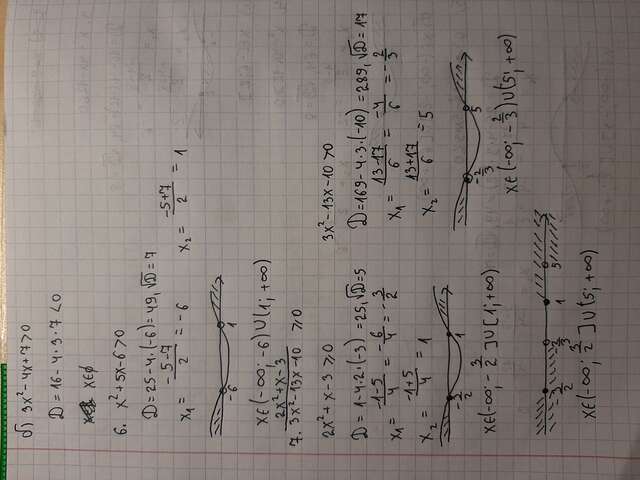 б) 3x² - 4x + 7 > 0
D = 16 - 4·3·7 < 0
x∈∅
6. x² + 5x - 6 > 0
D = 25 - 4·(-6) = 49, √D = 7
x₁ = (-5-7)/2 = -6    x₂ = (-5+7)/2 = 1
-6 1
x∈(-∞; -6)∪(1; +∞)
7. (2x² + x - 3)/(3x² - 13x - 10) ≥ 0
2x² + x - 3 ≥ 0
D = 1 - 4·2·(-3) = 25, √D = 5
x₁ = (-1-5)/4 = -6/4 = -3/2
x₂ = (-1+5)/4 = 1
-3/2 1
x∈(-∞; -3/2]∪[1; +∞)
3x² - 13x - 10 > 0
D = 169 - 4·3·(-10) = 289, √D = 17
x₁ = (13-17)/6 = -4/6 = -2/3
x₂ = (13+17)/6 = 5
-2/3 5
x∈(-∞; -2/3)∪(5; +∞)
-3/2 -2/3 1 5
x∈(-∞; -3/2]∪(5; +∞)